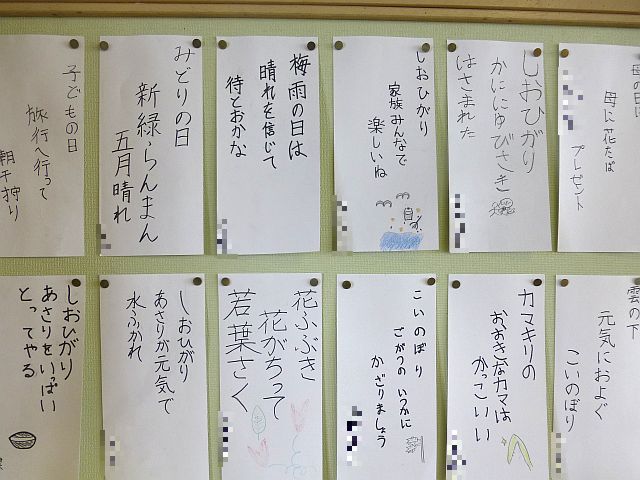 母の日に
母に花たば
プレゼント
しおひがり
かににゆびさき
はさまれた
しおひがり
家族みんなで
楽しいね
梅雨の日は
晴れを信じて
待とおかな
みどりの日
新緑らんまん
五月晴れ
子どもの日
旅行へ行って
潮干狩り
雲の下
元気におよぐ
こいのぼり
カマキリの
おおきなカマは
かっこいい
こいのぼり
ごがつのいつかに
かざりましょう
花ふぶき
花がちって
若葉さく
しおひがり
あさりが元気で
水ふかれ
しおひがり
あさりをいっぱい
とってやる